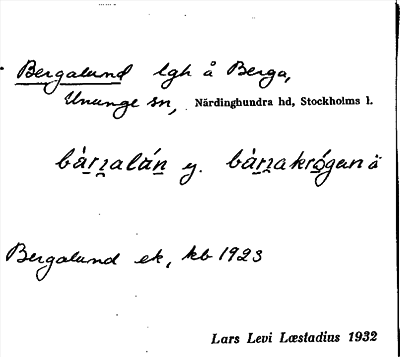 Bergalund lgh å Berga,
Ununge sn, Närdinghundra hd, Stockholms l.
bàrʒalán y. bàrʒakrógan å
Bergalund ek, kb 1923
Lars Levi Læstadius 1932